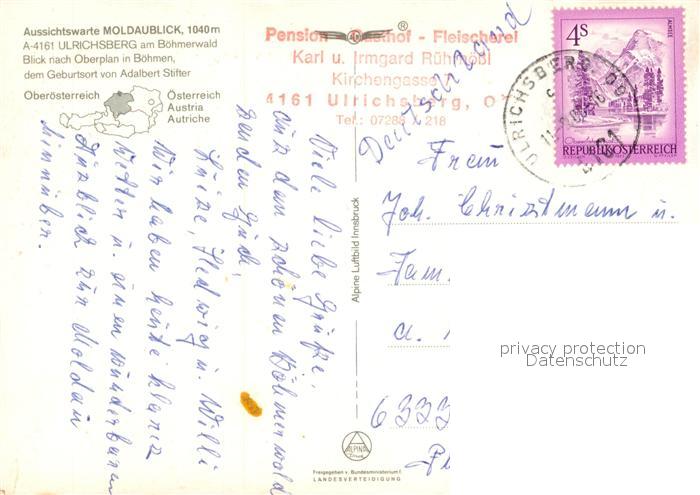 Aussichtswarte MOLDAUBLICK, 1040m
A-4161 ULRICHSBERG am Böhmerwald
Blick nach Oberplan in Böhmen,
dem Geburtsort von Adalbert Stifter
Oberösterreich
Österreich
Austria
Autriche
Pension - Gasthof - Fleischerei
Karl u. Irmgard
Kirchengasse
4161 Ulrichsberg, OÖ
Tel.: 07288 / 218
Deutschland
4S
ALMSEE
REPUBLIK ÖSTERREICH
ULRICHSBERG OÖ
4161
Viele liebe Grüße,
aus dem schönen Böhmerwald
senden Euch,
Luise, Hedwig u. Willi
Wir haben heute klares
Wetter u. einen wunderbaren
Ausblick zur Moldau
hinüber.
Alpine Luftbild Innsbruck
Frau
Joh. Christmann u.
Fam.
a.
6333
ALPINE
Freigegeben v. Bundesministerium f.
LANDESVERTEIDIGUNG
privacy protection
Datenschutz